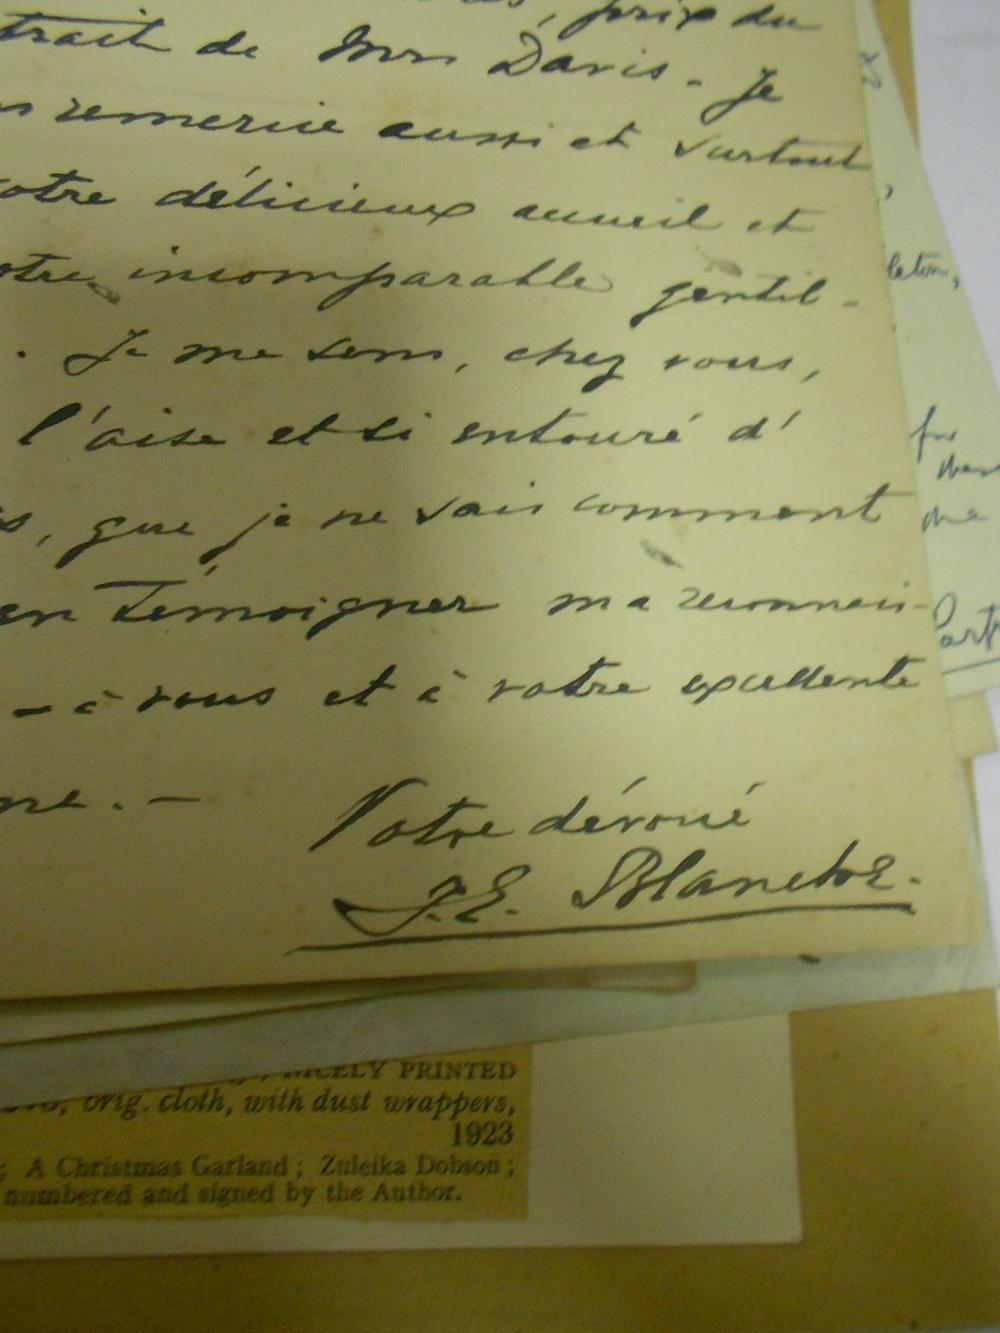 prix du
trait de Mrs Davis. Je
remercie aussi et surtout
otre délicieux accueil et
otre incomparable gentil-
. Je me sens, chez vous,
l'aise et si entouré d'
s, que je ne sais comment
en témoigner ma reconnais-
- à vous et à votre excellente
ne. -
Votre dévoué
J.E. Blanche.
NICELY PRINTED
orig. cloth, with dust wrappers,
1923
; A Christmas Garland; Zuleika Dobson;
numbered and signed by the Author.